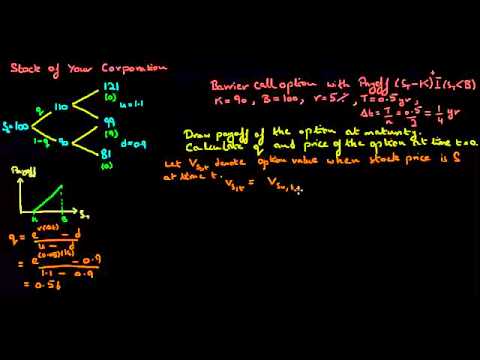 Stock of Your Corporation
121
(0)
110
u = 1.1
q
S₀=100
99
(9)
1-q
90
d = 0.9
81
(0)
Barrier call option with Payoff (S_T-K)⁺ I(S_T<B)
K = 90, B = 100, r = 5%, T = 0.5 yr,
Δt = T/n = 0.5/2 = 1/4 yr
Draw payoff of the option at maturity.
Calculate q and price of the option at time t=0.
Let V_{S,t} denote option value when stock price is S
at time t.
V_{S,t} =
Payoff
K B S_T
q = (e^{r(Δt)} - d)/(u - d)
= (e^{(0.05)(1/4)} - 0.9)/(1.1 - 0.9)
= 0.56